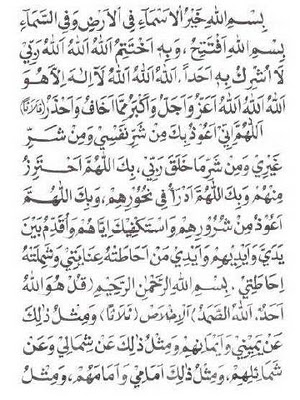 بِسْمِ اللهِ خَيْرُ الْاَسْمَآءِ فِى الْاَرْضِ وَفِى السَّمَآءِ
بِسْمِ اللهِ اَفْتَتِحُ، وَبِهِ اَخْتَتِمُ اللهُ اللهُ اللهُ رَبِّيْ
لَا اُشْرِكُ بِهِ اَحَدًا. اَللهُ اللهُ اللهُ لَا اِلٰهَ اِلَّا هُوَ
اَللهُ اللهُ اللهُ اَعَزُّ وَاَجَلُّ وَاَكْبَرُ مِمَّا اَخَافُ وَاَحْذَرُ (ثَلَاثًا)
اَللّٰهُمَّ اِنِّيْ اَعُوْذُ بِكَ مِنْ شَرِّ نَفْسِيْ وَمِنْ شَرِّ
غَيْرِيْ وَمِنْ شَرِّ مَا خَلَقَ رَبِّيْ، بِكَ اللّٰهُمَّ اَحْتَرِزُ
مِنْهُمْ وَبِكَ اللّٰهُمَّ اَدْرَأُ فِى نُحُوْرِهِمْ، وَبِكَ اللّٰهُمَّ
اَعُوْذُ مِنْ شُرُوْرِهِمْ وَاَسْتَكْفِيْكَ اِيَّاهُمْ وَاُقَدِّمُ بَيْنَ
يَدَيَّ وَاَيْدِيْهِمْ وَاَيْدِيْ مَنْ اَحَاطَتْهُ عِنَايَتِيْ وَشَمِلَتْهُ
اِحَاطَتِيْ. بِسْمِ اللهِ الرَّحْمٰنِ الرَّحِيْمِ (قُلْ هُوَ اللهُ
اَحَدٌ. اَللهُ الصَّمَدُ) اَلْاِخْلَاصْ (ثَلَاثًا) وَمِثْلُ ذٰلِكَ
عَنْ يَمِيْنِيْ وَاَيْمَانِهِمْ وَمِثْلُ ذٰلِكَ عَنْ شِمَالِيْ وَعَنْ
شَمَائِلِهِمْ، وَمِثْلُ ذٰلِكَ اَمَامِيْ وَاَمَامَهُمْ، وَمِثْلُ